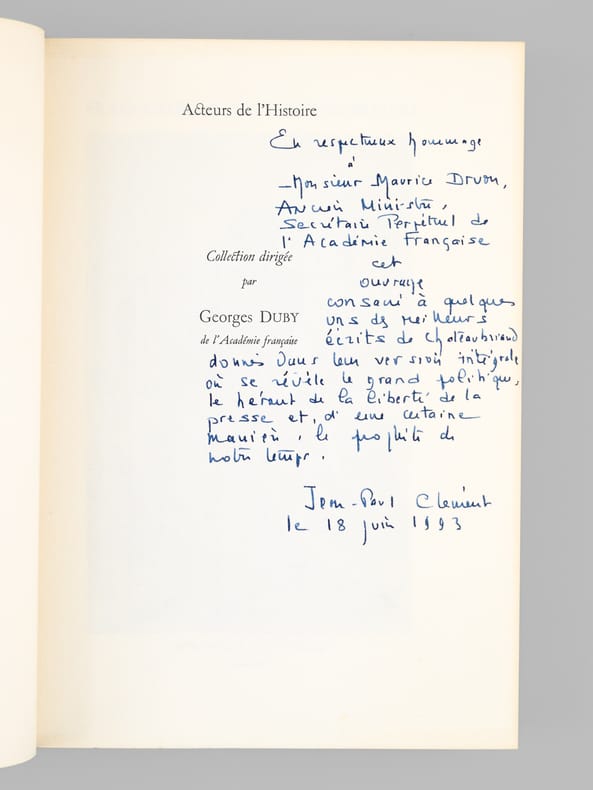 Acteurs de l'Histoire
En respectueux hommage
à
Monsieur Maurice Druon,
Ancien Ministre,
Secrétaire Perpétuel de
l'Académie Française
Collection dirigée
cet
par
ouvrage
consacré à quelques
Georges DUBY
uns des meilleurs
de l'Académie française
écrits de Chateaubriand
donnés dans leur version intégrale
où se révèle le grand politique,
le héraut de la liberté de la
presse et, d'une certaine
manière, le prophète de
notre temps.
Jean-Paul Clément
le 18 juin 1993